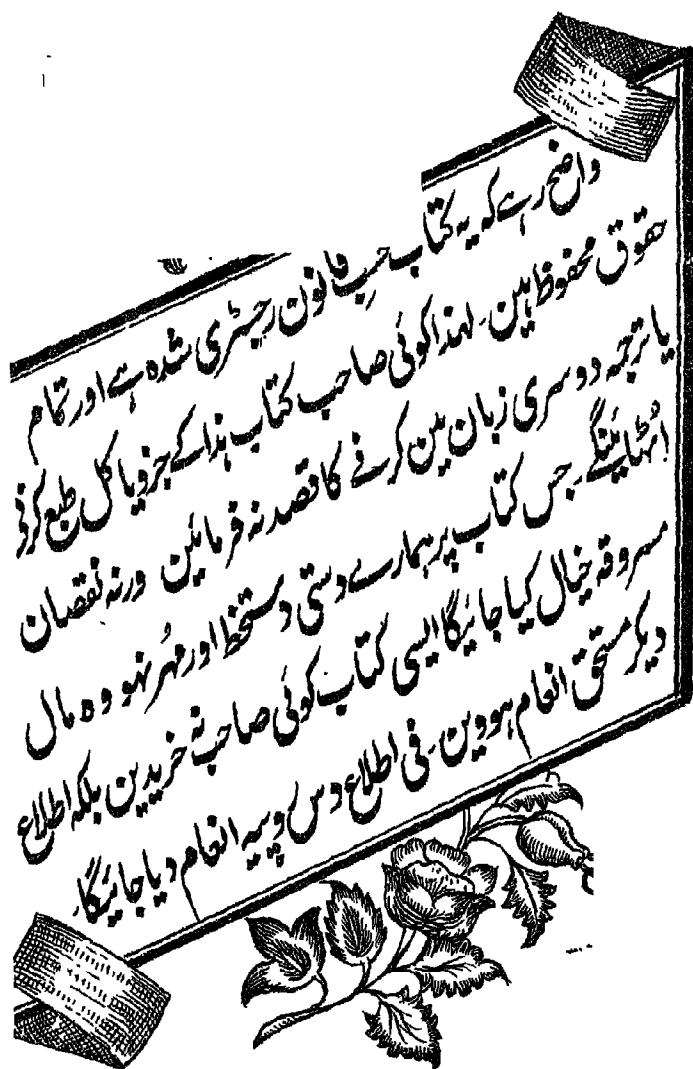 واضح رہے کہ یہ کتاب حسبِ قانون رجسٹری شدہ ہے اور تمام
حقوق محفوظ ہین۔ لہذا کوئی صاحب کتاب ہذا کے جزو یا کل طبع کرنے
یا ترجمہ دوسری زبان مین کرنے کا قصد نہ فرمائین ورنہ نقصان
اُٹھائینگے۔ جس کتاب پر ہمارے دستی دستخط اور مُہر نہو وہ مال
مسروقہ خیال کیا جائیگا ایسی کتاب کوئی صاحب نہ خریدین بلکہ اطلاع
دیکر مستحق انعام ہووین۔ فی اطلاع دس روپیہ انعام دیا جائیگا۔